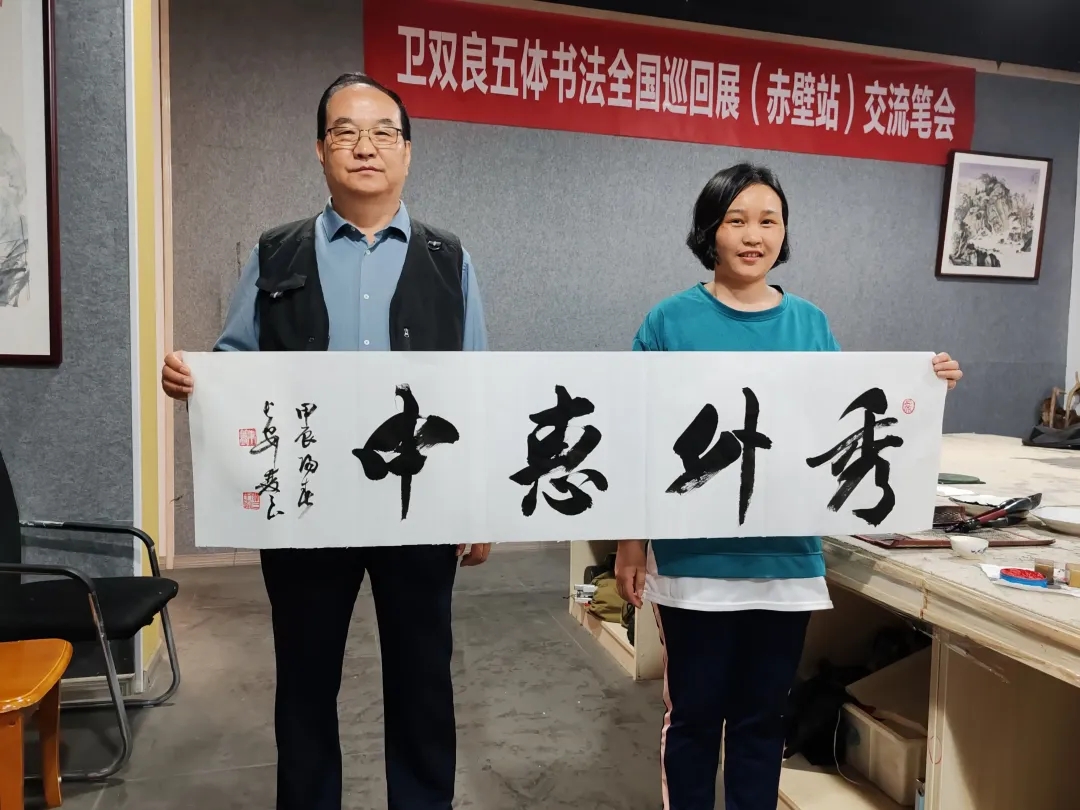 卫双良五体书法全国巡回展（赤壁站）交流笔会
秀外惠中
甲辰阳春